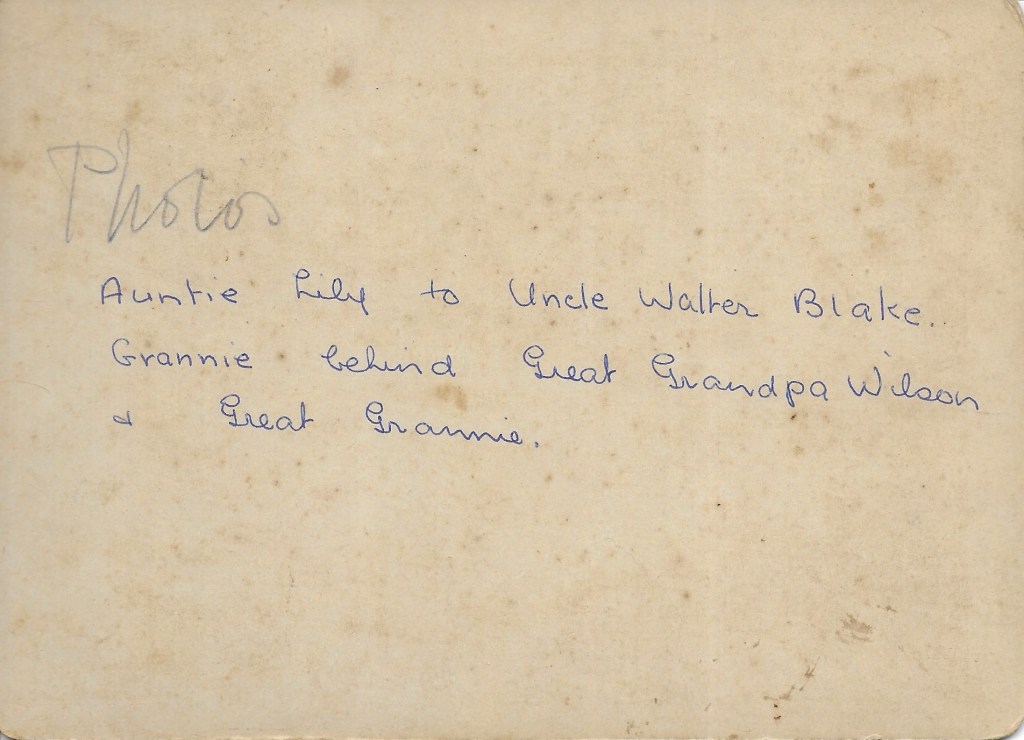 Photos
Auntie Lily to Uncle Walter Blake..
Grannie behind Great Grandpa Wilson
& Great Grannie.